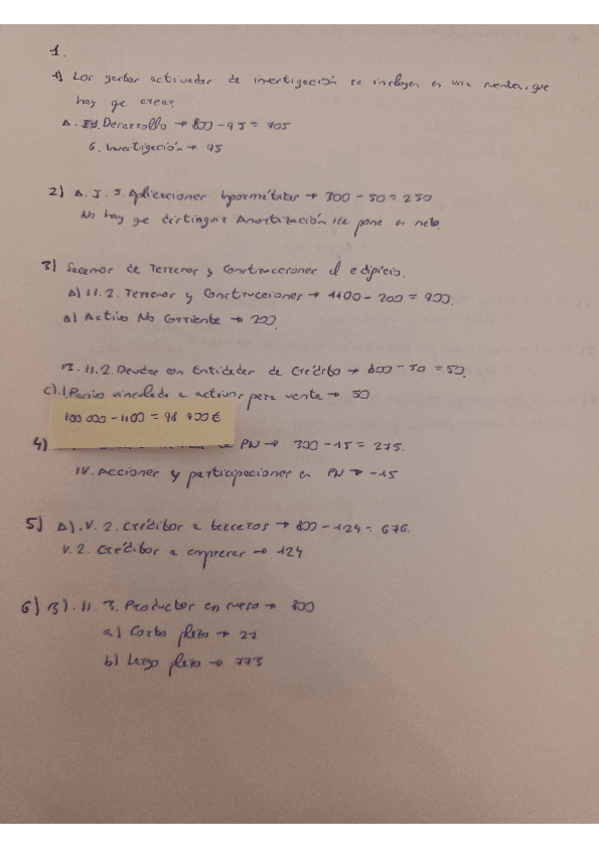 1.
1) Los gastos activados de investigación se incluyen en una cuenta, que
hay que crear.
A. I.1. Desarrollo → 800 - 95 = 705
6. Investigación → 95
2) A. I. 5. Aplicaciones informáticas → 300 - 50 = 250
No hay que distinguir Amortización se pone en neto.
3) Sacamos de Terrenos y Construcciones el edificio.
A) II. 2. Terrenos y Construcciones → 1100 - 200 = 900.
A) Activo No Corriente → 200.
B. II. 2. Deudas con Entidades de Crédito → - 50 = 50.
C). 1. Pasivo vinculado a activos para venta → 50
100 000 - 1100 = 98 900 €
4) PN → 300 - 15 = 275.
IV. Acciones y participaciones en PN → -15
5) A). V. 2. Créditos a terceros → 800 - 124 = 676.
V. 2. Créditos a empresas → 124
6) B). II. 3. Productos en curso → 800
a) Corto plazo → 27
b) Largo plazo → 773